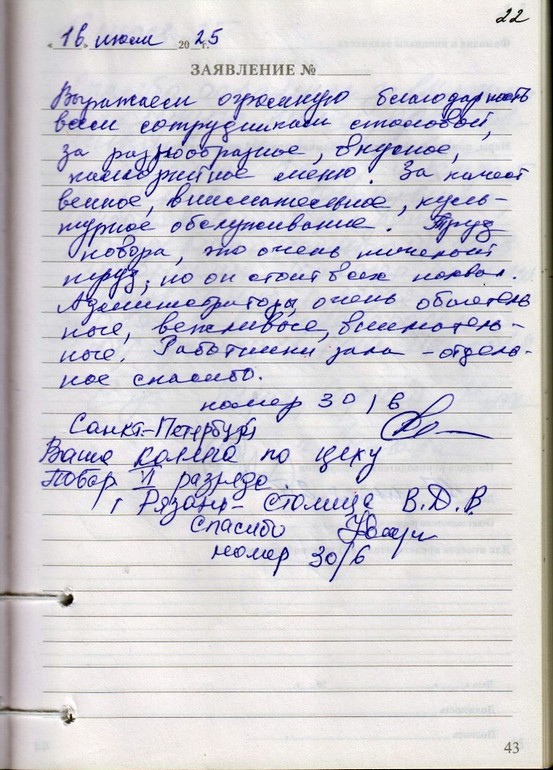 22
«16» июля 2025 г.
ЗАЯВЛЕНИЕ №
Выражаем огромную благодарность
всем сотрудникам столовой,
за разнообразное, вкусное,
меню. За качест
венное, внимательное, куль-
турное обслуживание. Труд
повара, это очень тяжелый
труд, но он стоит всех похвал.
Администраторы, очень обаятель
ные, вежливые, вниматель-
ные. Работники зала - отдель-
ное спасибо.
номер 30/6
Санкт-Петербург
Ваша коллега по цеху
Повар VI разряда.
г Рязань - столица В.Д.В
Спасибо
номер 30/6
43